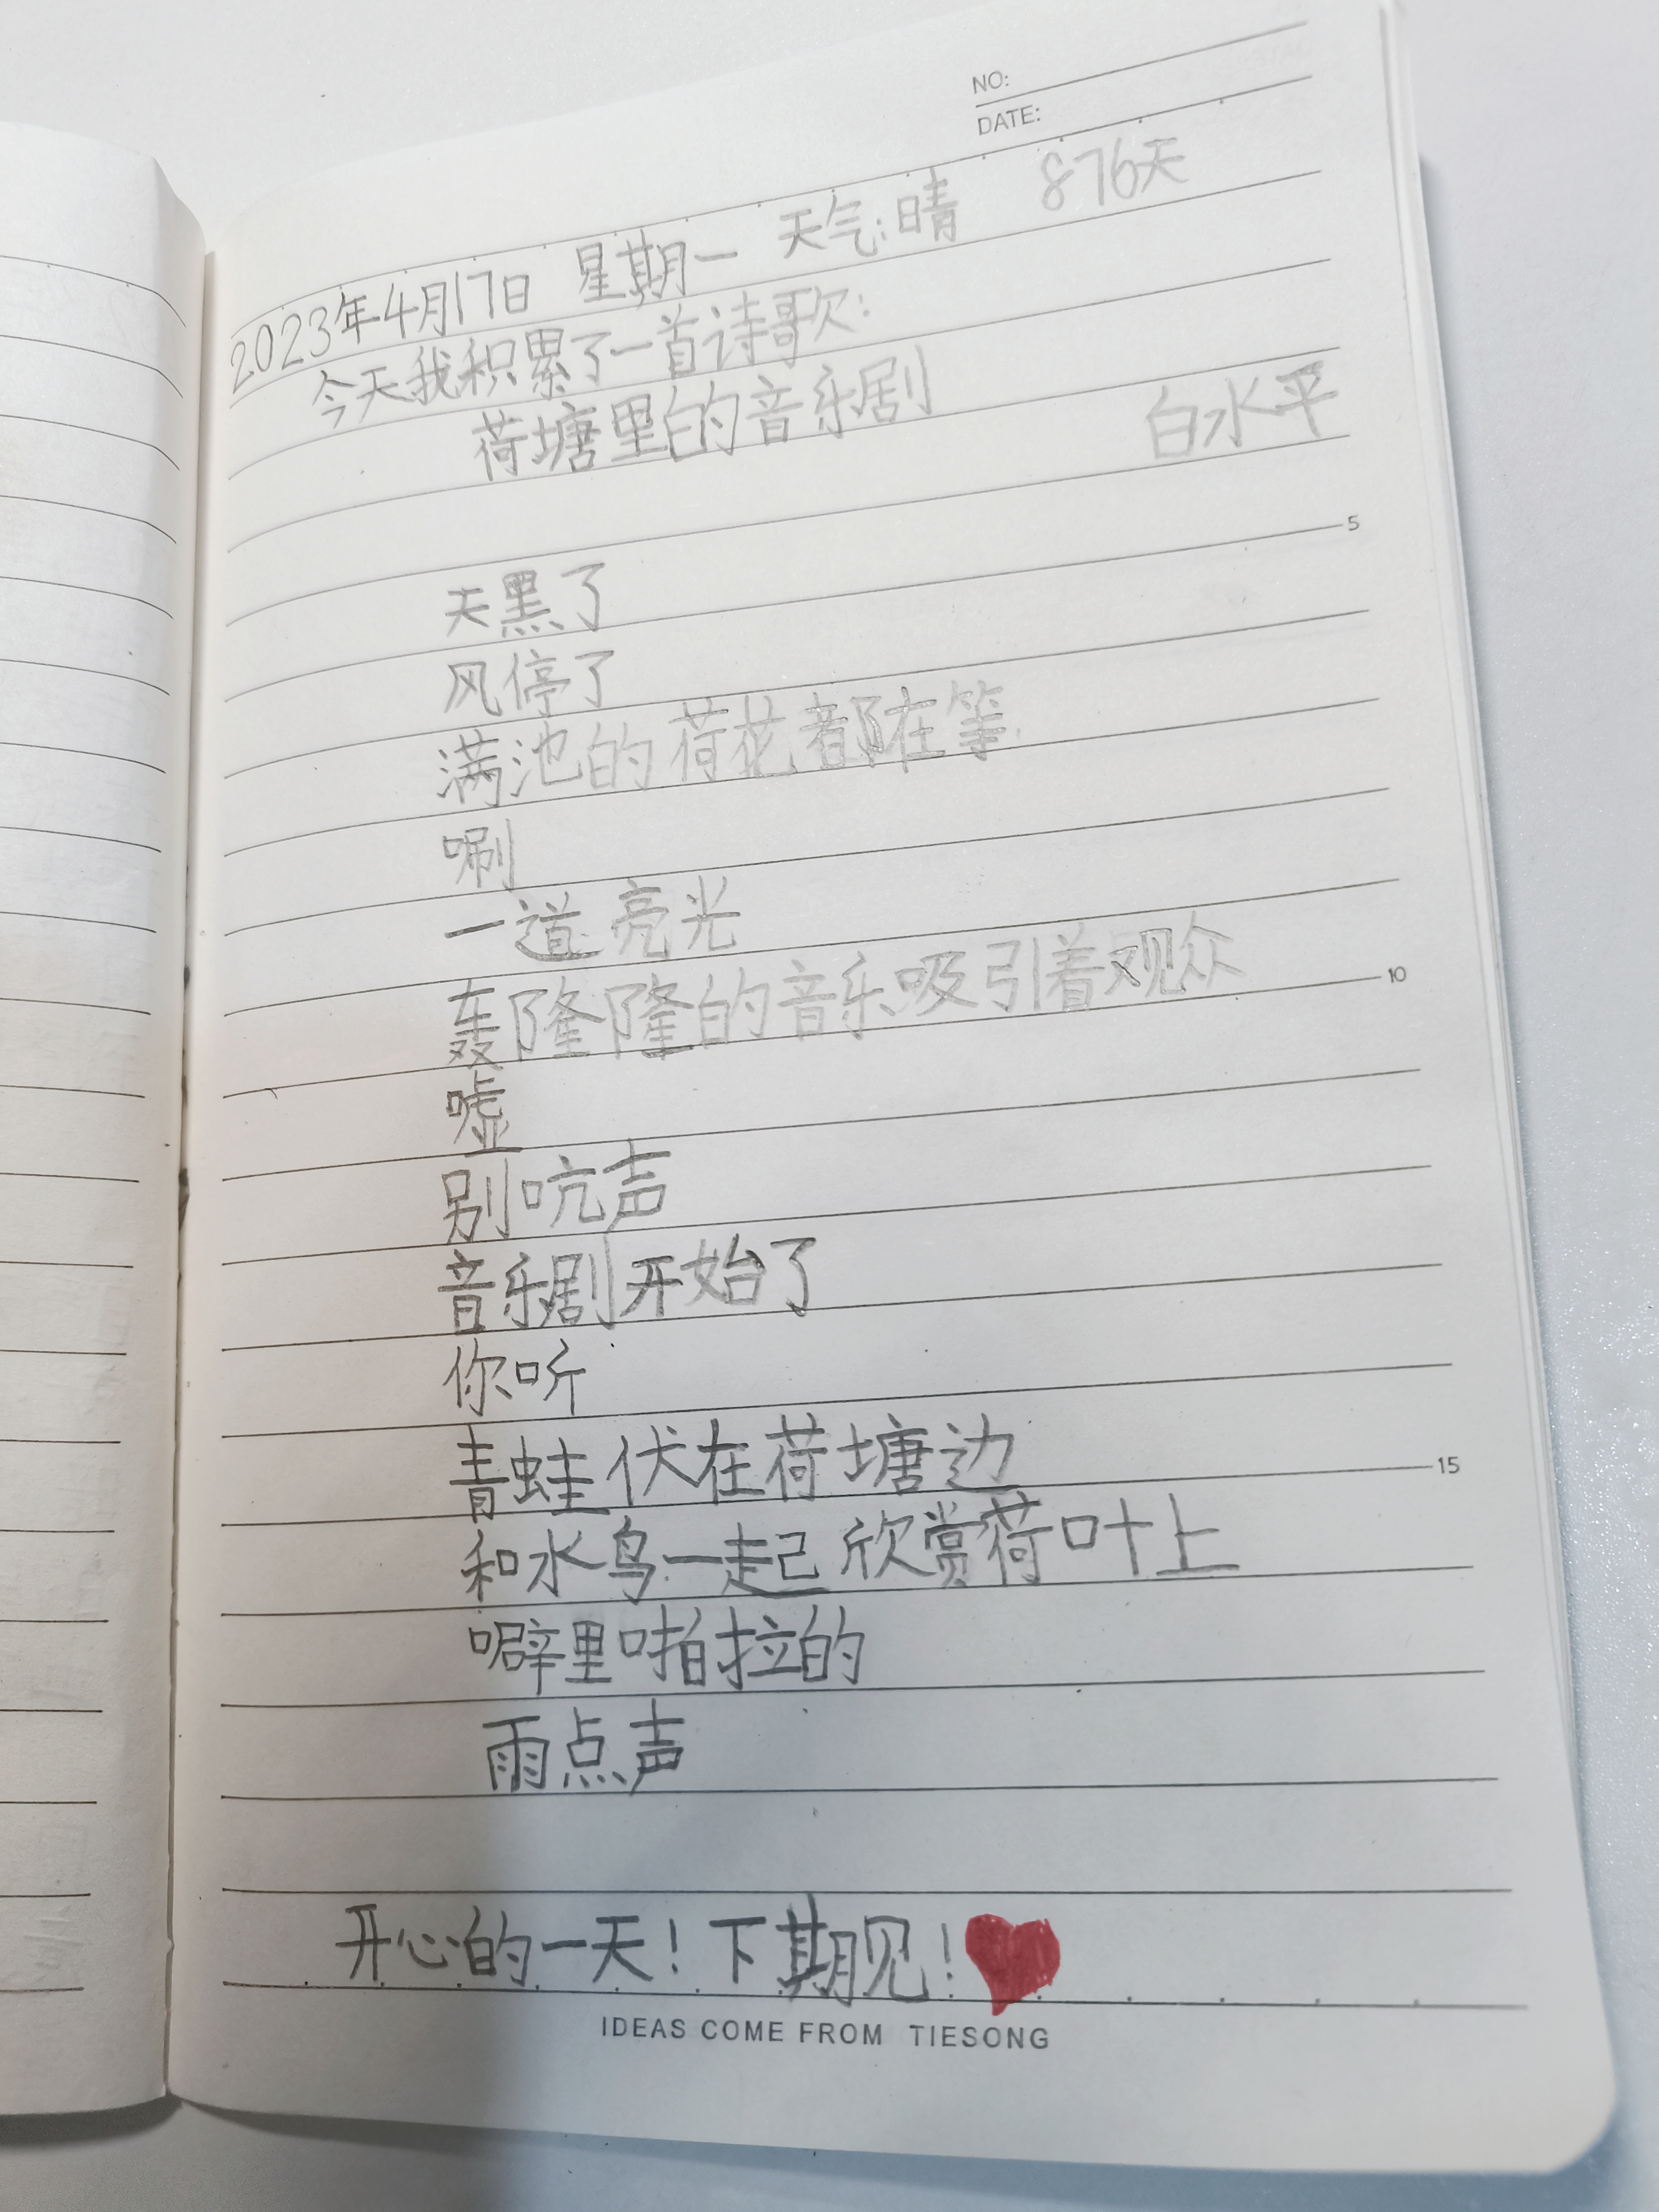 NO:
DATE:
2023年4月17日 星期一 天气:晴 876天
今天我积累了一首诗歌:
荷塘里的音乐剧
白水平
5
天黑了
风停了
满池的荷花都在等
唰
一道亮光
轰隆隆的音乐吸引着观众
10
嘘
别吭声
音乐剧开始了
你听
青蛙伏在荷塘边
15
和水鸟一起欣赏荷叶上
噼里啪拉的
雨点声
开心的一天!下期见!
IDEAS COME FROM TIESONG